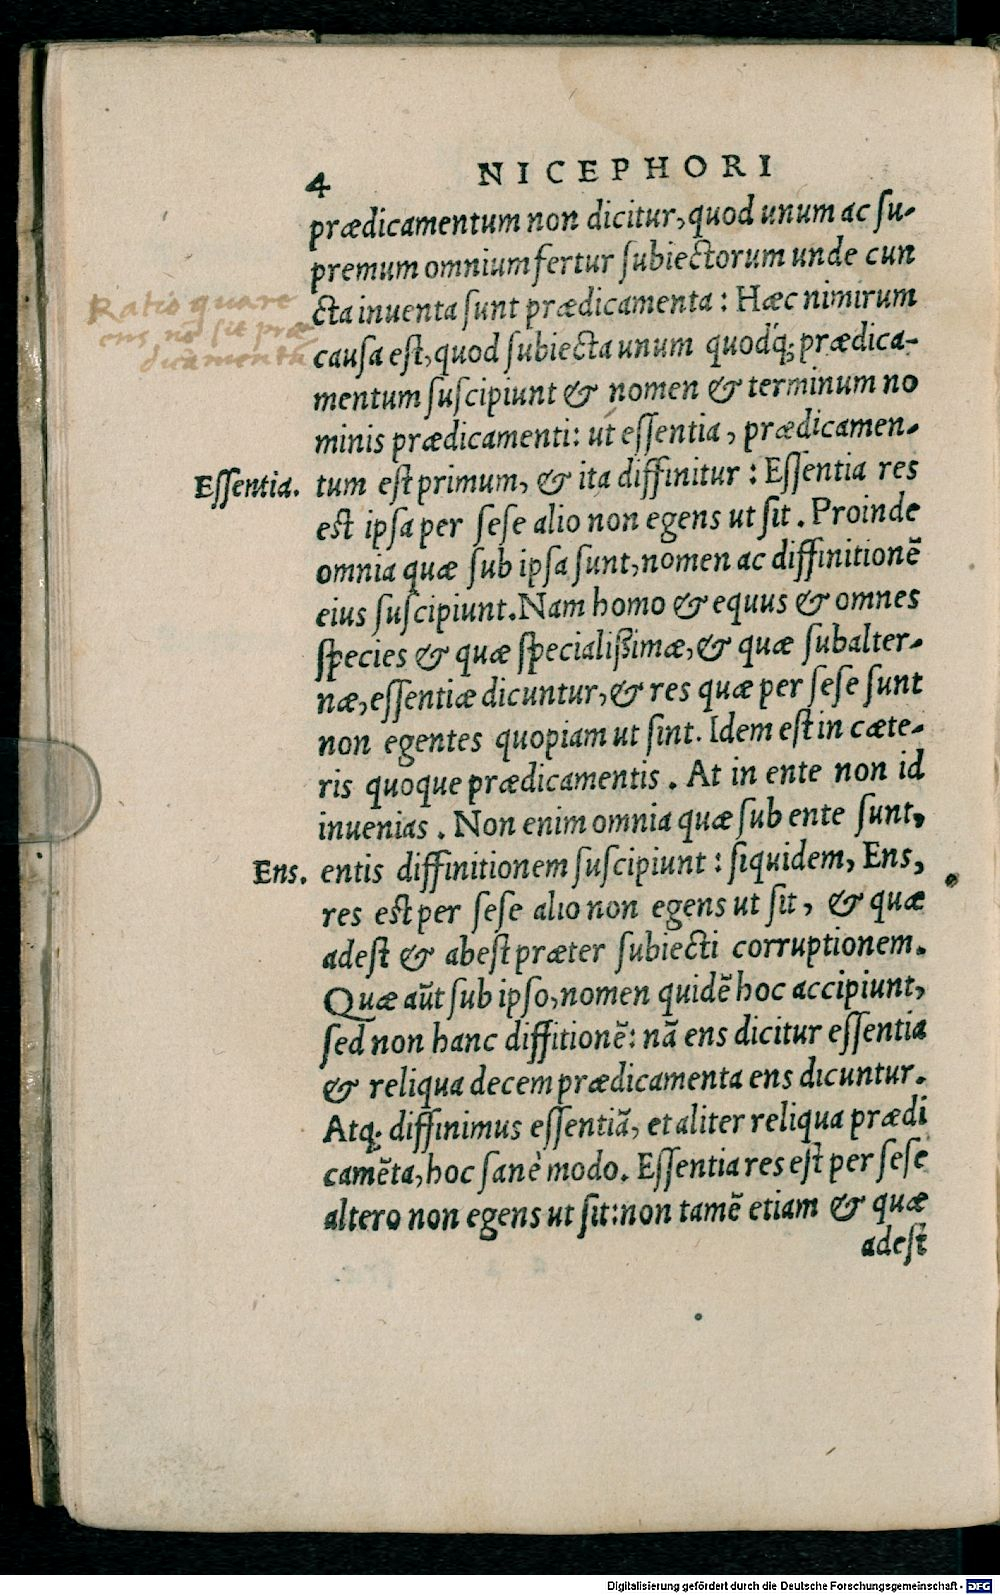 4 NICEPHORI
prædicamentum non dicitur, quod unum ac su-
premum omnium fertur subiectorum unde cun
cta inuenta sunt prædicamenta: Hæc nimirum
Ratio quare
ens nō sit præ
dicamentū
causa est, quod subiecta unum quodq́; prædica-
mentum suscipiunt & nomen & terminum no
minis prædicamenti: ut essentia, prædicamen-
Essentia. tum est primum, & ita diffinitur: Essentia res
est ipsa per sese alio non egens ut sit. Proinde
omnia quæ sub ipsa sunt, nomen ac diffinitionē
eius suscipiunt. Nam homo & equus & omnes
species & quæ specialißimæ, & quæ subalter-
næ, essentiæ dicuntur, & res quæ per sese sunt
non egentes quopiam ut sint. Idem est in cæte-
ris quoque prædicamentis. At in ente non id
inuenias. Non enim omnia quæ sub ente sunt,
Ens. entis diffinitionem suscipiunt: siquidem, Ens,
res est per sese alio non egens ut sit, & quæ
adest & abest præter subiecti corruptionem.
Quæ aūt sub ipso, nomen quidē hoc accipiunt,
sed non hanc diffitionē: nā ens dicitur essentia
& reliqua decem prædicamenta ens dicuntur.
Atq; diffinimus essentiā, et aliter reliqua prædi
camēta, hoc sanè modo. Essentia res est per sese
altero non egens ut sit: non tamē etiam & quæ
adest
Digitalisierung gefördert durch die Deutsche Forschungsgemeinschaft - DFG